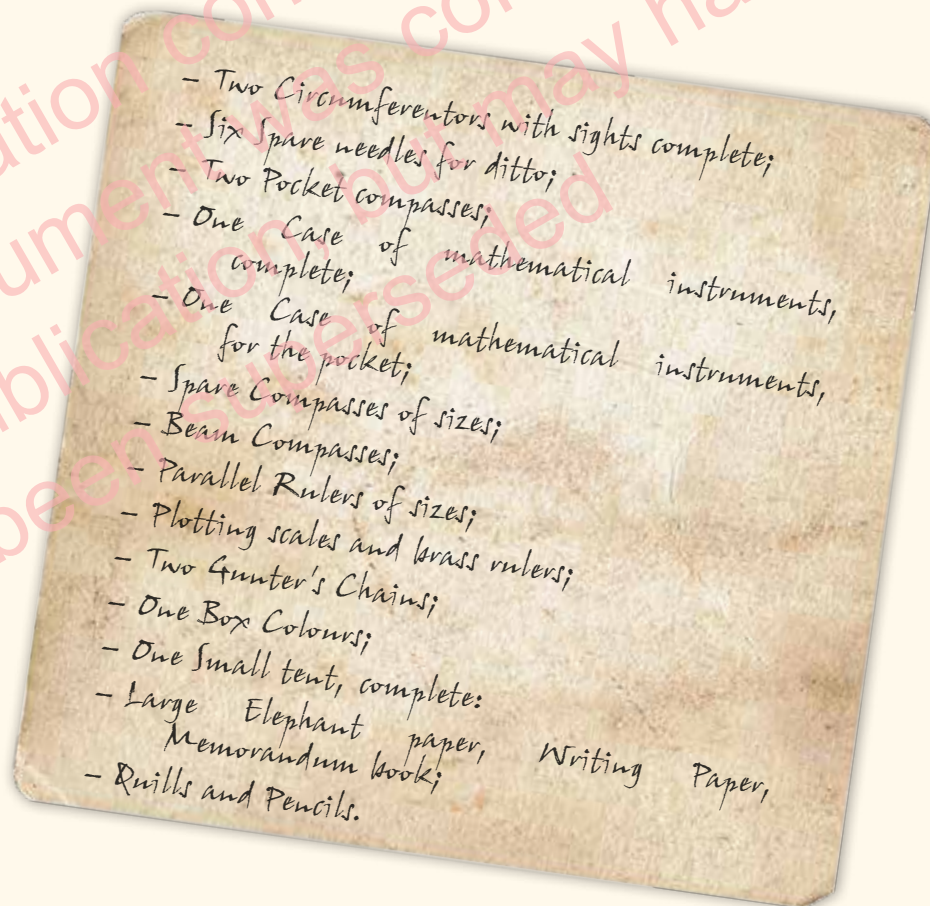 - Two Circumferentors with sights complete;
- Six Spare needles for ditto;
- Two Pocket compasses;
- One Case of mathematical instruments,
complete;
- One Case of mathematical instruments,
for the pocket;
- Spare Compasses of sizes;
- Beam Compasses;
- Parallel Rulers of sizes;
- Plotting scales and brass rulers;
- Two Gunter's Chains;
- One Box Colours;
- One Small tent, complete:
- Large Elephant paper, Writing Paper,
Memorandum book;
- Quills and Pencils.
ument was co
blication, but may ha
been superseded